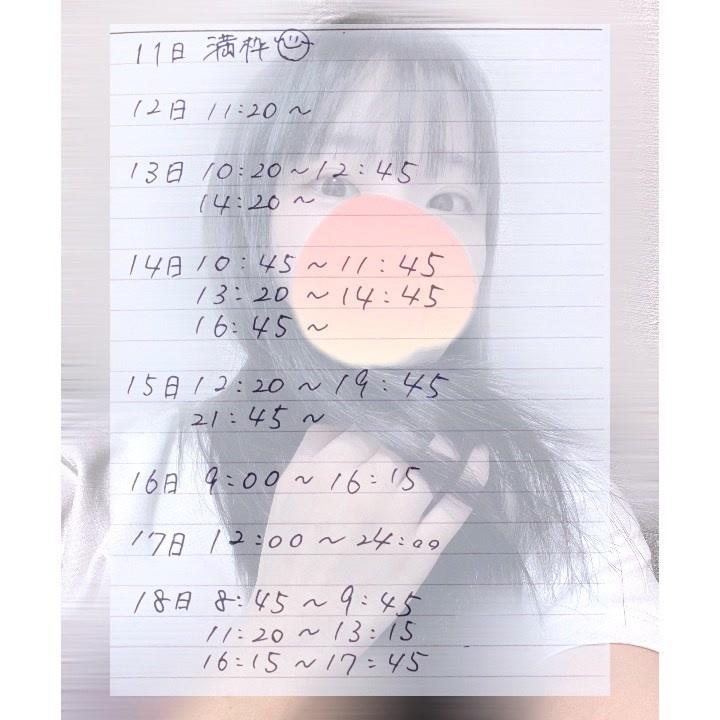 11日 満枠
12日 11:20~
13日 10:20~12:45
14:20~
14日 10:45~11:45
13:20~14:45
16:45~
15日 12:20~19:45
21:45~
16日 9:00~16:15
17日 12:00~24:00
18日 8:45~9:45
11:20~13:15
16:15~17:45